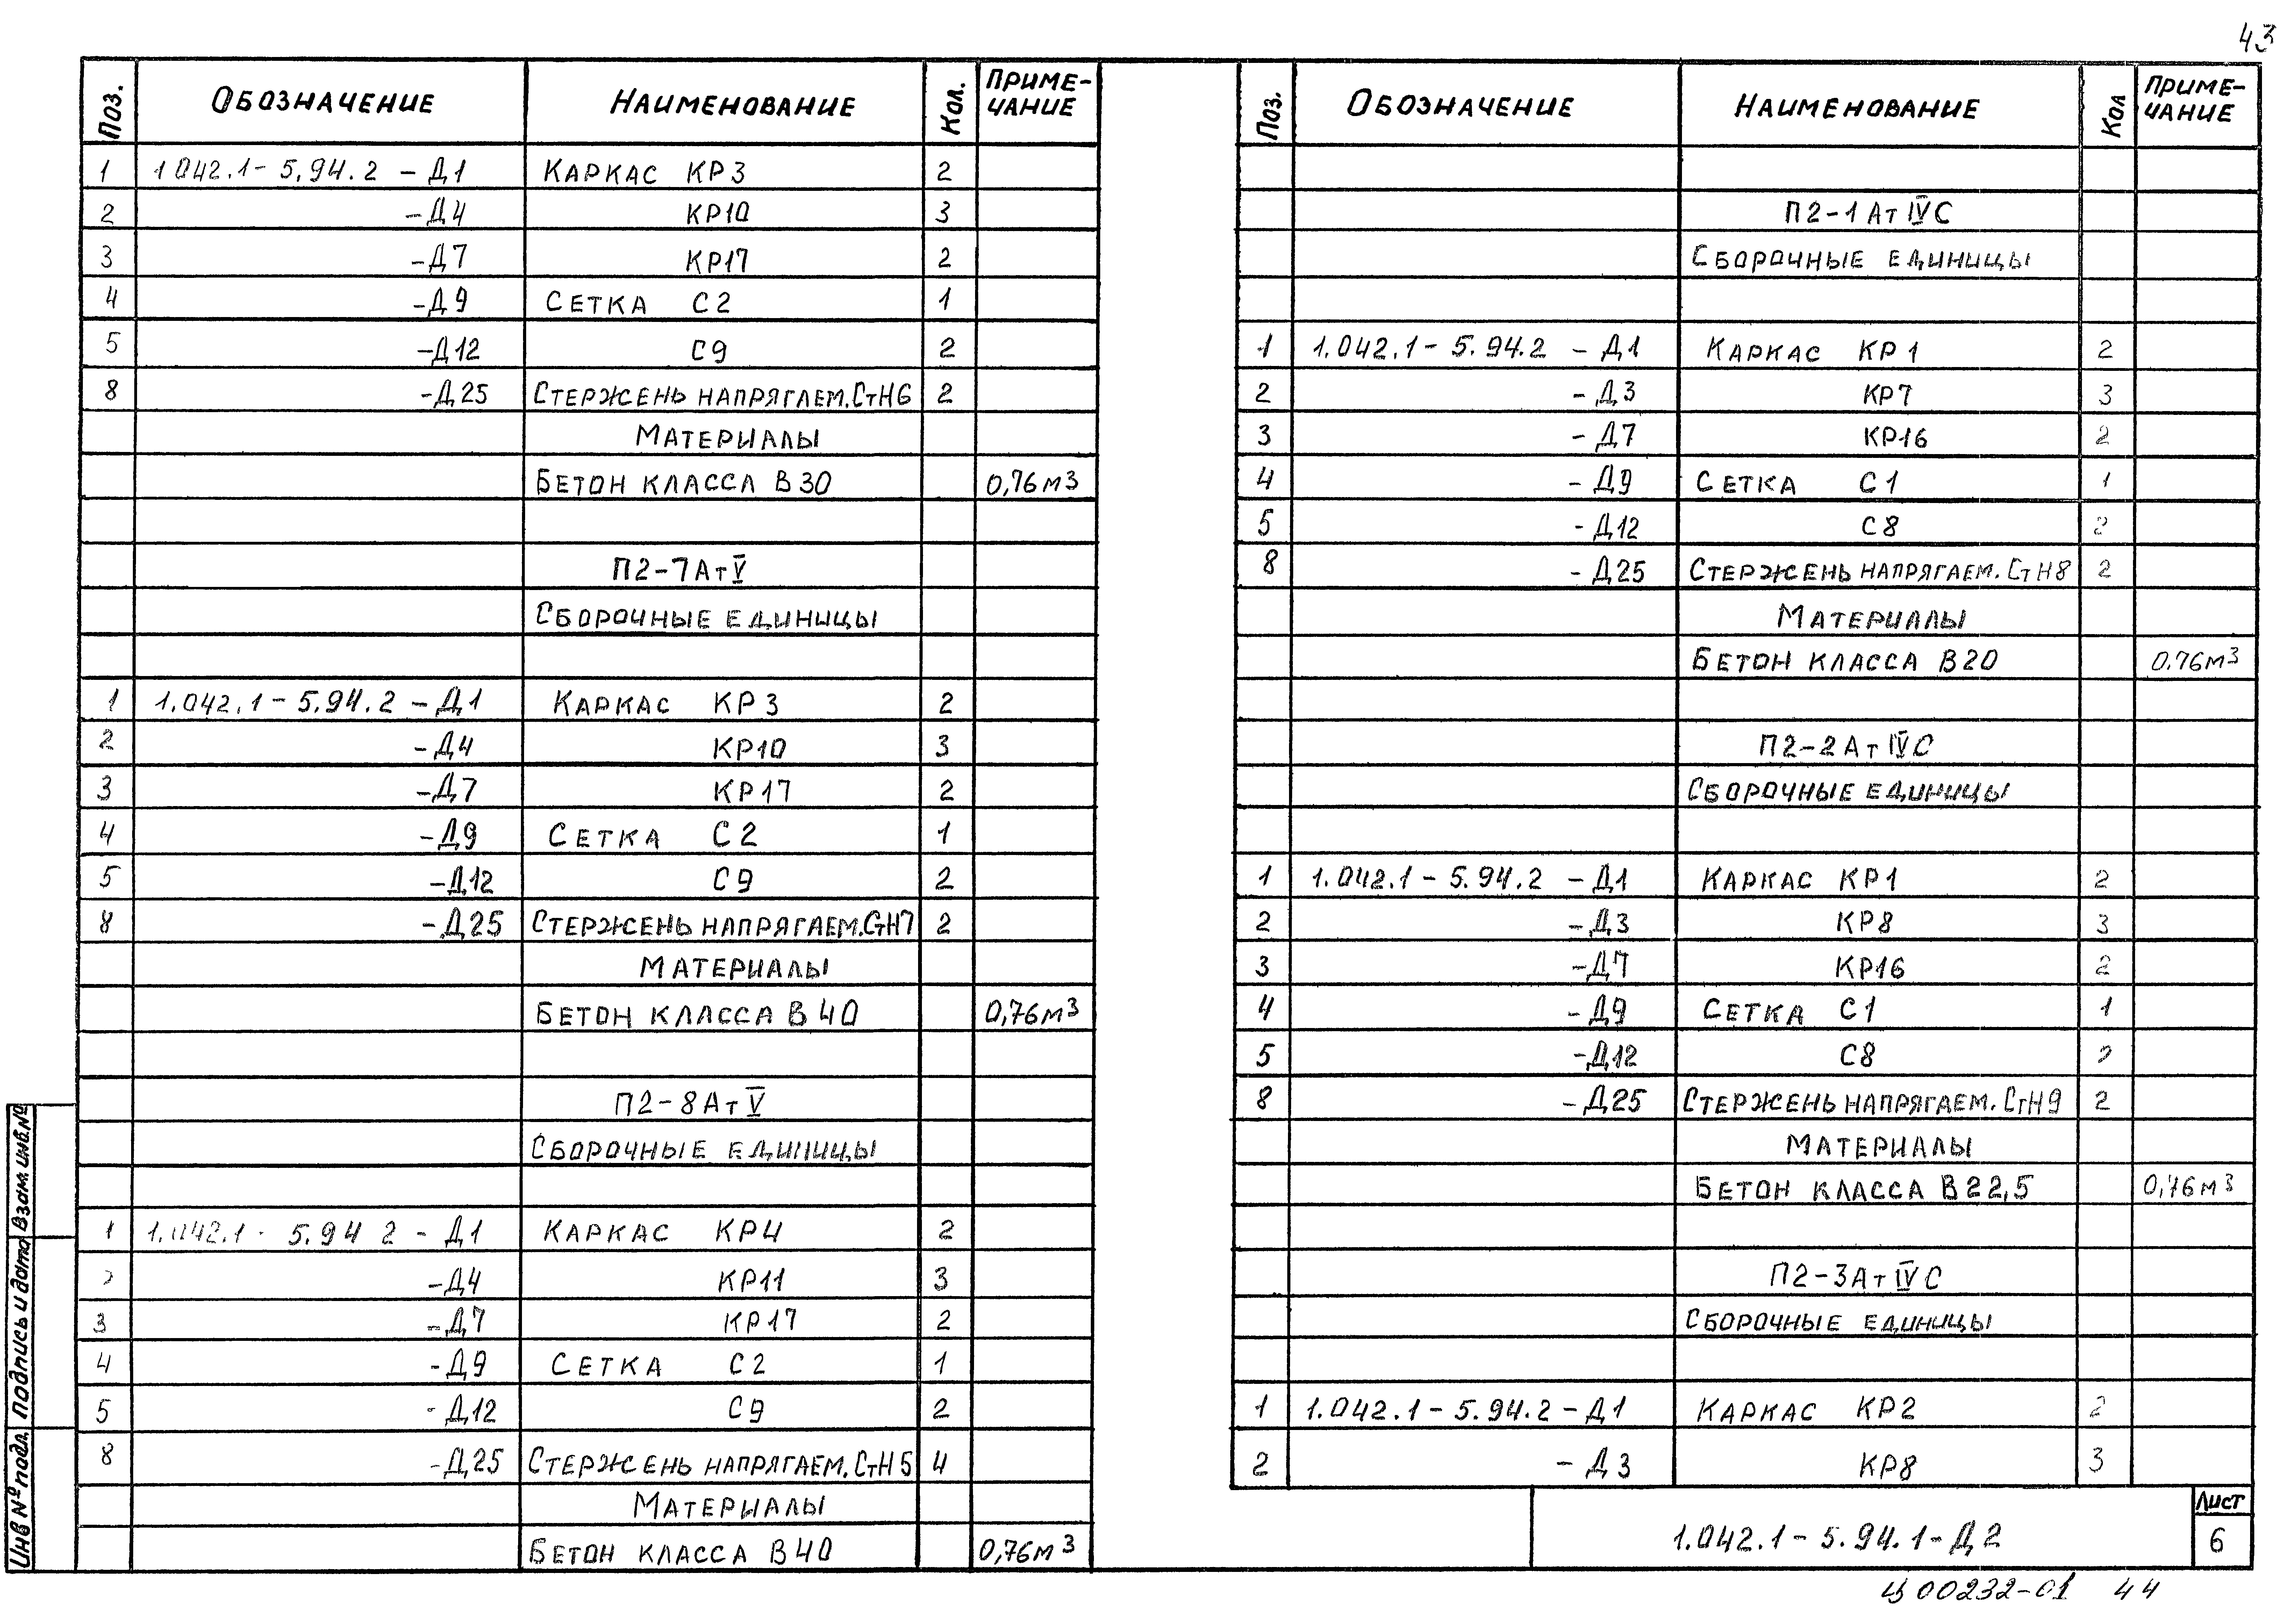 43
Поз. Обозначение Наименование Кол. Приме-чание
1 1042.1-5.94.2-Д1 Каркас КР3 2
2 -Д4 КР10 3
3 -Д7 КР17 2
4 -Д9 Сетка С2 1
5 -Д12 С9 2
8 -Д25 Стержень напрягаем. СтН6 2
Материалы
Бетон класса В30 0,76м3
П2-7АтV
Сборочные единицы
1 1.042.1-5.94.2-Д1 Каркас КР3 2
2 -Д4 КР10 3
3 -Д7 КР17 2
4 -Д9 Сетка С2 1
5 -Д12 С9 2
8 -Д25 Стержень напрягаем. СтН7 2
Материалы
Бетон класса В40 0,76м3
П2-8АтV
Сборочные единицы
1 1.042.1-5.94 2-Д1 Каркас КР4 2
2 -Д4 КР11 3
3 -Д7 КР17 2
4 -Д9 Сетка С2 1
5 -Д12 С9 2
8 -Д25 Стержень напрягаем. СтН5 4
Материалы
Бетон класса В40 0,76м3
Поз. Обозначение Наименование Кол Приме-чание
П2-1АтIVС
Сборочные единицы
1 1.042.1-5.94.2-Д1 Каркас КР1 2
2 -Д3 КР7 3
3 -Д7 КР16 2
4 -Д9 Сетка С1 1
5 -Д12 С8 2
8 -Д25 Стержень напрягаем. СтН8 2
Материалы
Бетон класса В20 0.76м3
П2-2АтIVС
Сборочные единицы
1 1.042.1-5.94.2-Д1 Каркас КР1 2
2 -Д3 КР8 3
3 -Д7 КР16 2
4 -Д9 Сетка С1 1
5 -Д12 С8 2
8 -Д25 Стержень напрягаем. СтН9 2
Материалы
Бетон класса В22,5 0,76м3
П2-3АтIVС
Сборочные единицы
1 1.042.1-5.94.2-Д1 Каркас КР2 2
2 -Д3 КР8 3
1.042.1-5.94.1-Д2
Лист
6
Инв № подл. Подпись и дата Взам. инв. №
Ц00232-01 44